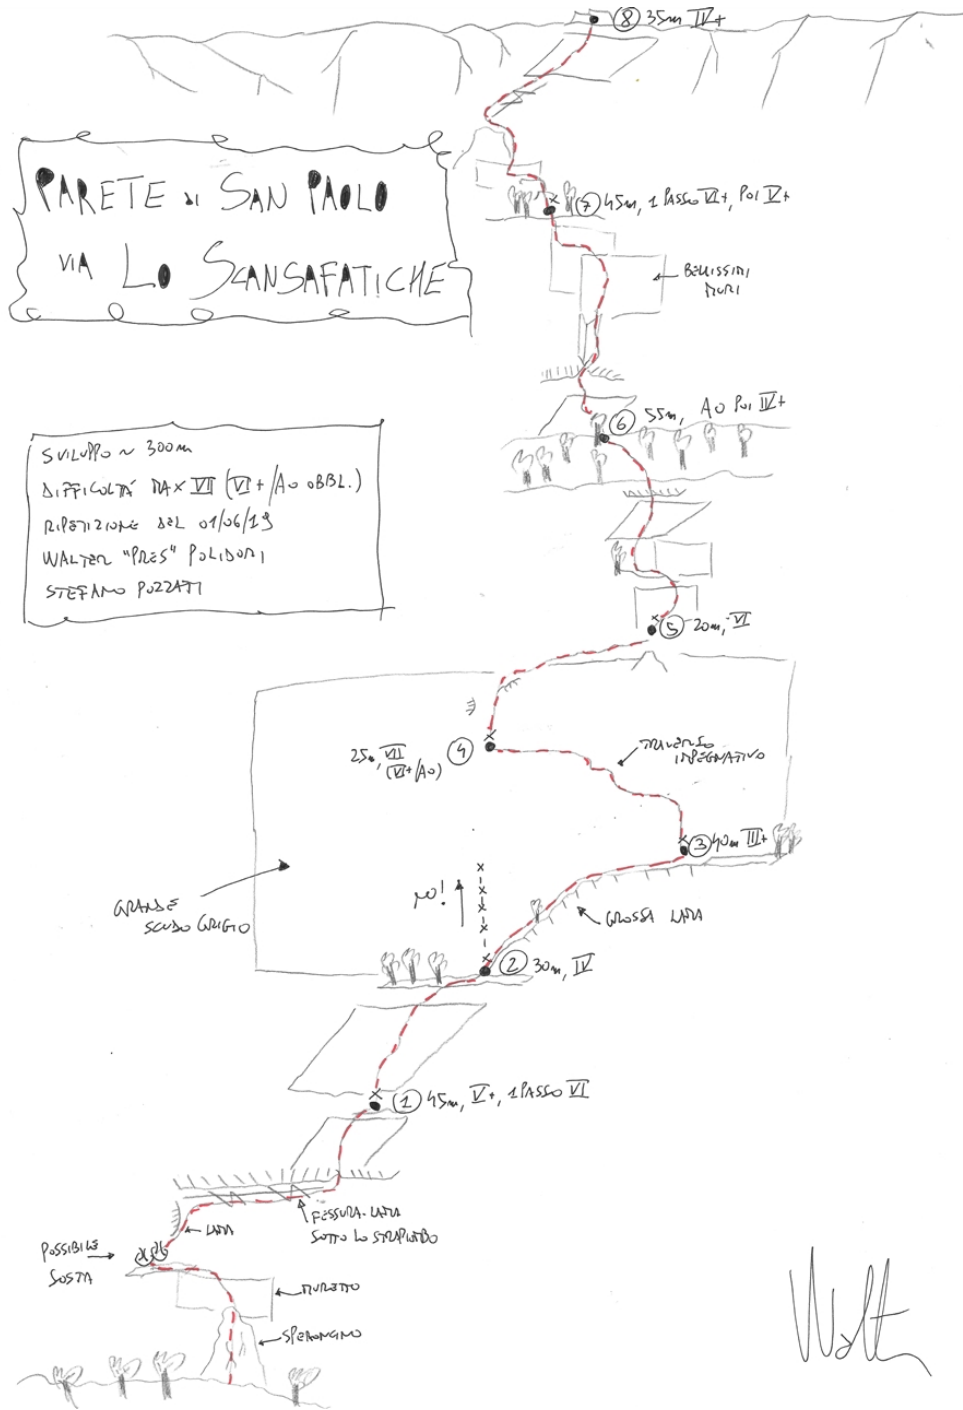 8 35m IV+
PARETE DI SAN PAOLO
VIA LO SCANSAFATICHE
7 45m, 1 PASSO VI+, POI IV+
BELLISSIMI
MURI
6 55m, A0 POI IV+
SVILUPPO ~ 300m
DIFFICOLTÁ MAX VII (VI+/A0 OBBL.)
RIPETIZIONE DEL 01/06/19
WALTER "PRES" POLIDORI
STEFANO POZZATI
5 20m, VI
4
25m, VII
(VI+/A0)
TRAVERSO
IMPEGNATIVO
3 40m III+
GRANDE
SCUDO GRIGIO
NO!
GROSSA LAMA
2 30m, IV
1 45m, V+, 1 PASSO VI
FESSURA-LAMA
SOTTO LO STRAPIOMBO
LAMA
POSSIBILE
SOSTA
MURETTO
SPERONCINO
Walt